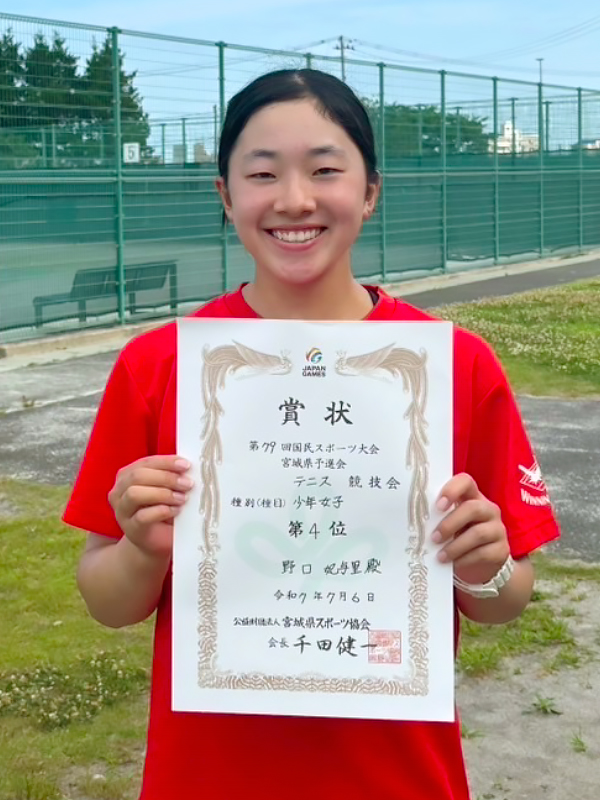 5
JAPAN
GAMES
賞状
第79回国民スポーツ大会
宮城県予選会
テニス 競技会
種別(種目) 少年女子
第4位
野口 妃与里殿
令和7年7月6日
公益財団法人 宮城県スポーツ協会
会長 千田健一